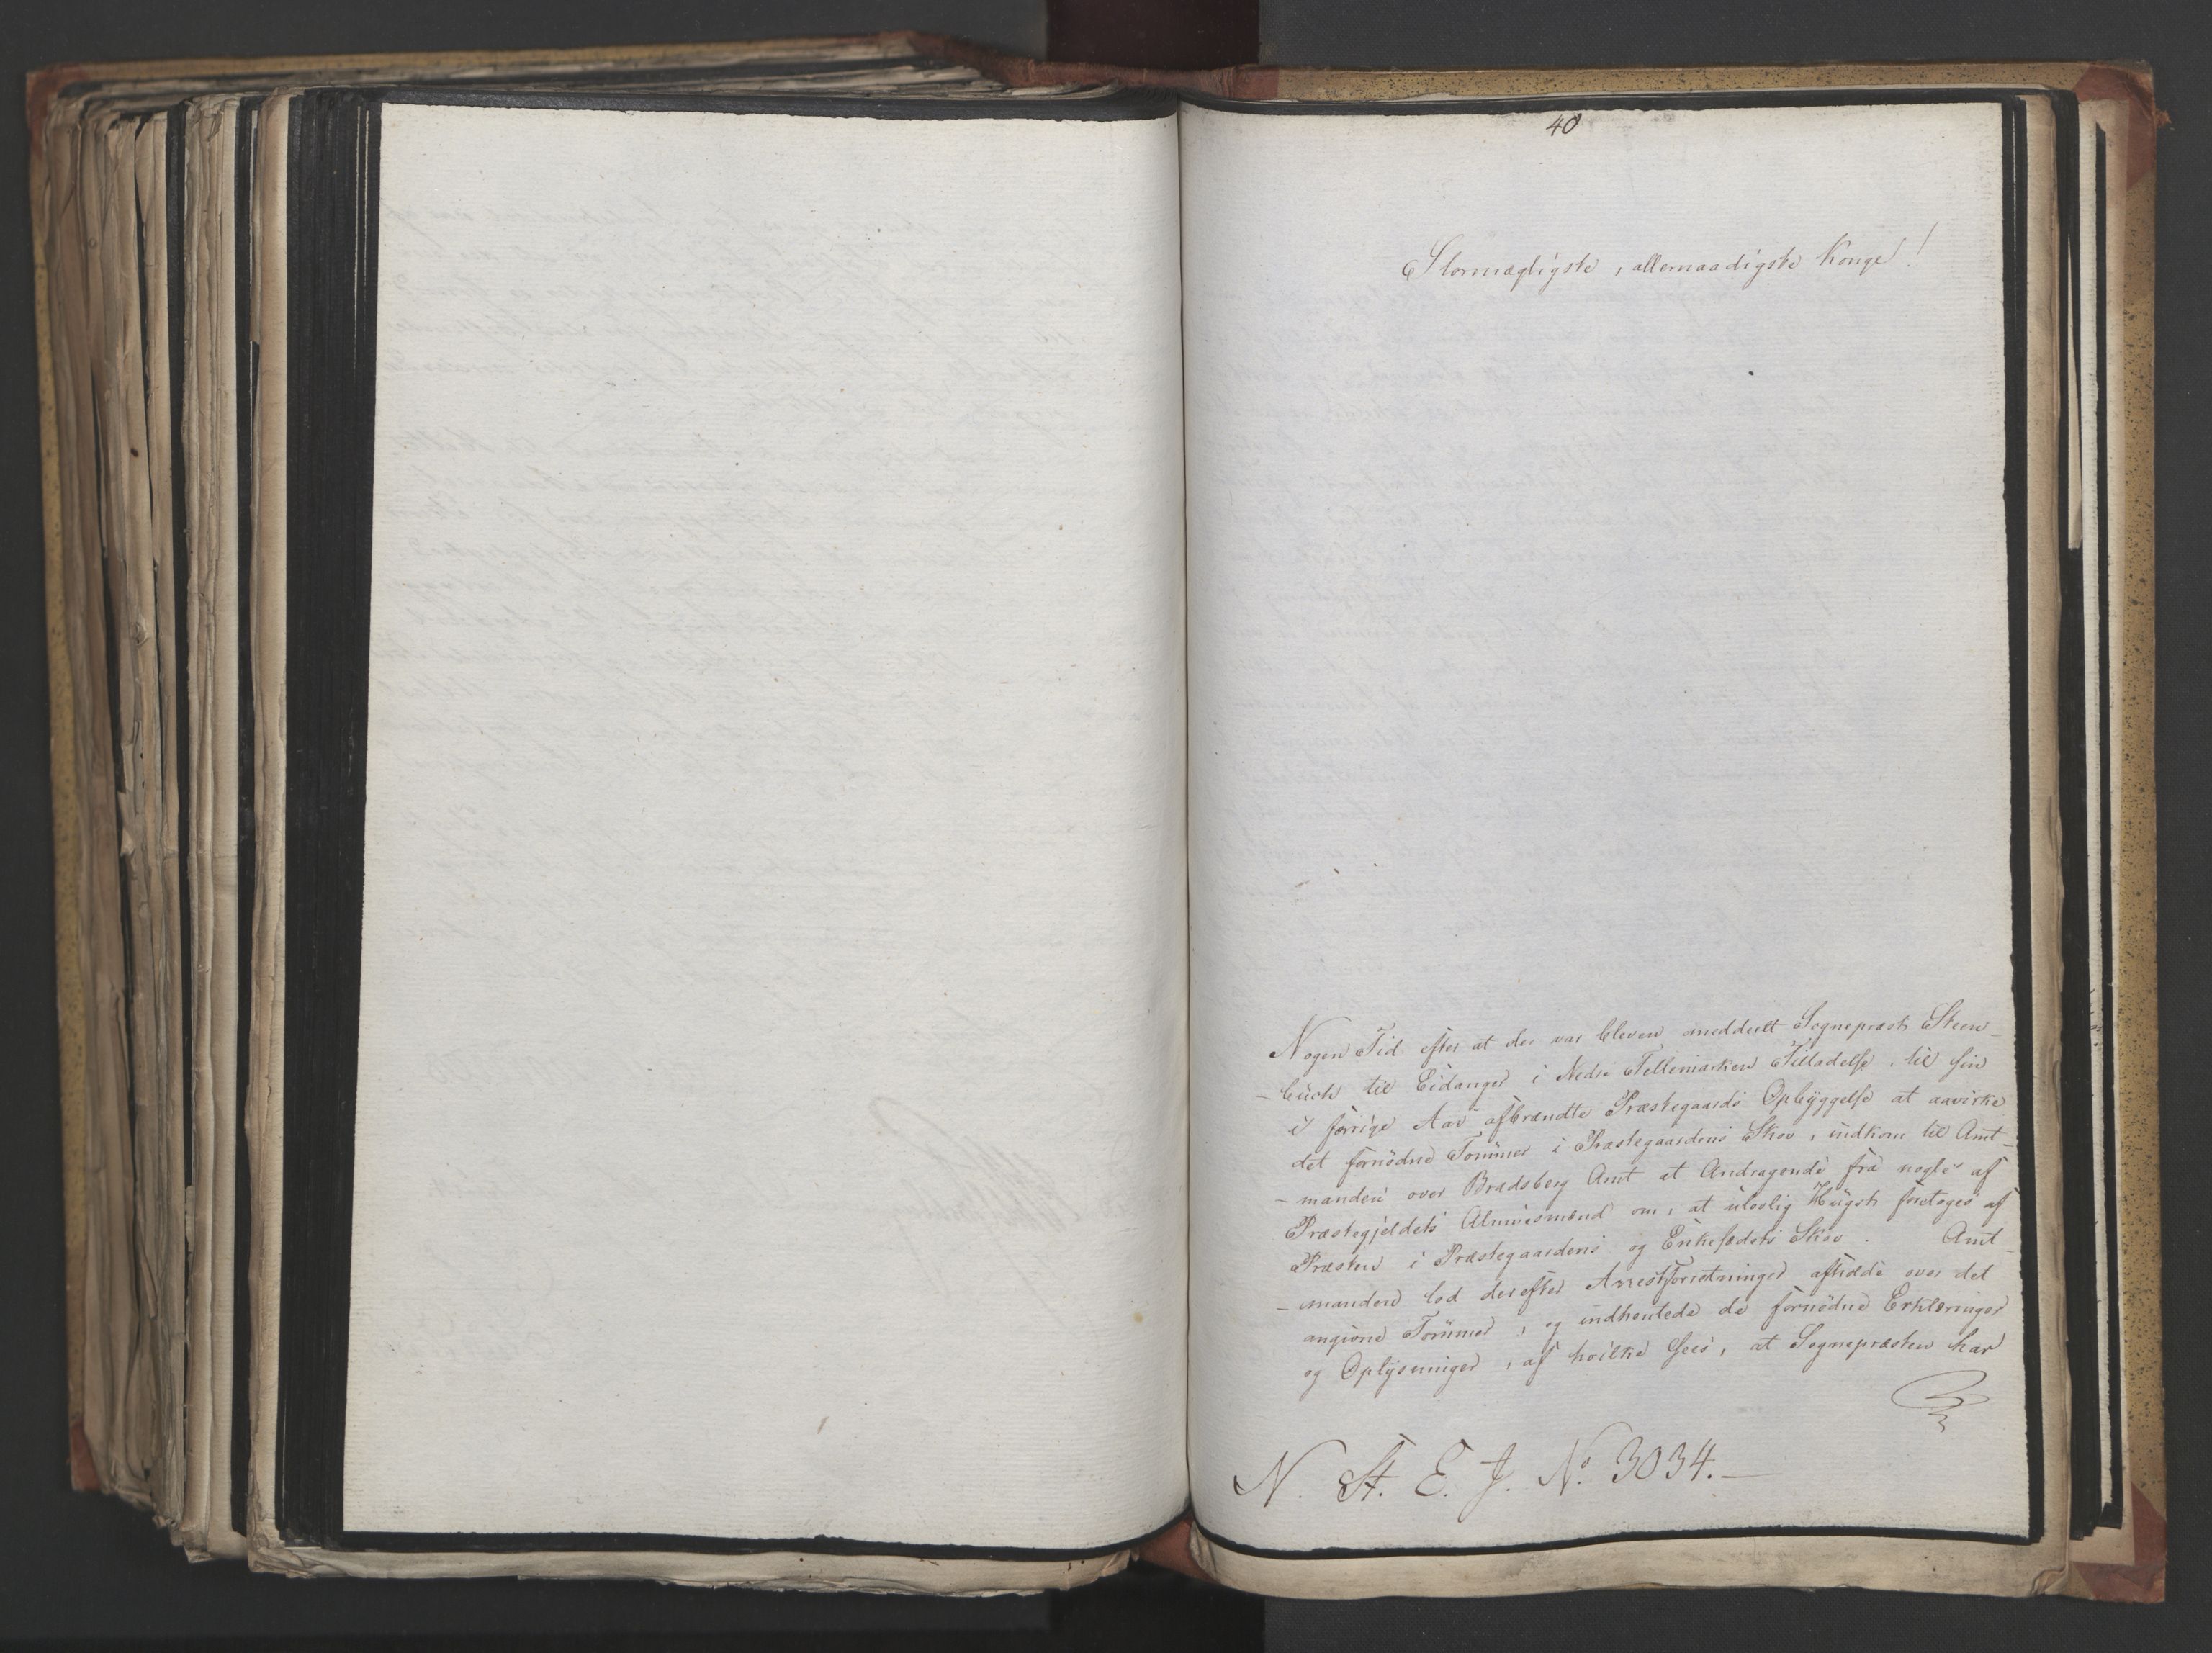 40
Stormægtigste, allernaadigste Konge!
Nogen Tid efter at der var bleven meddeelt Sognepræst Steen-
-buch til Eidanger i Nedre Tellemarken Tilladelse til sin
i forrige Aar afbrændte Præstegaards Opbyggelse at aavirke
det fornødne Tømmer i Præstegaardens Skov, indkom til Amt-
-manden over Bradsberg Amt et Andragende fra nogle af
Præstegjeldets Almuesmænd om, at ulovlig Hugst foretoges af
Præsten i Præstegaardens og Enkesædets Skov. Amt-
-manden lod derefter Arrestforretninger afholde over det
angivne Tømmer, og indhentede de fornødne Erklæringer
og Oplysninger, af hvilke sees, at Sognepræsten har
N. St. E. J. No. 3034.-